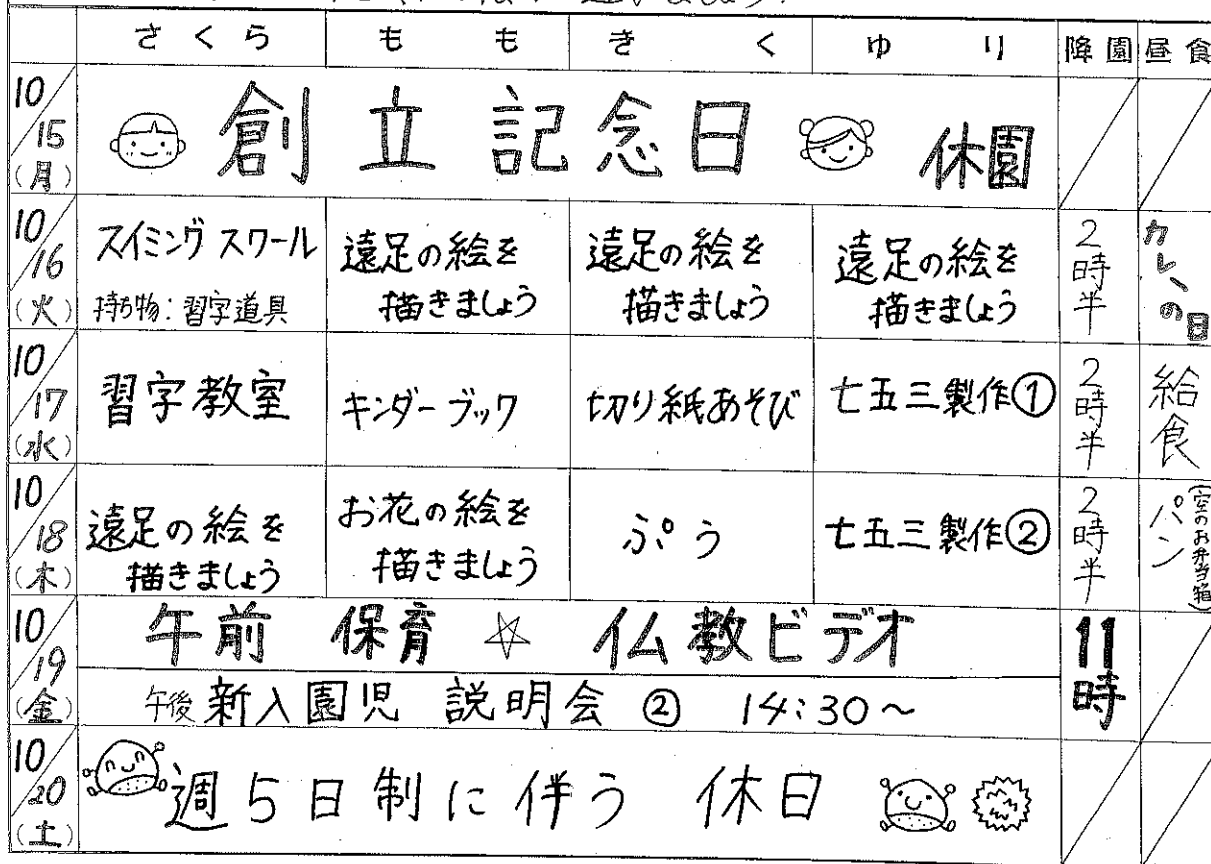 さくら もも きく ゆり 降園 昼食
10/15(月) 創立記念日 休園
10/16(火) スイミングスクール 遠足の絵を描きましょう 遠足の絵を描きましょう 遠足の絵を描きましょう 2時半 カレーの日
持ち物:習字道具
10/17(水) 習字教室 キンダーブック 切り紙あそび 七五三製作① 2時半 給食
10/18(木) 遠足の絵を描きましょう お花の絵を描きましょう ぷぅ 七五三製作② 2時半 パン(空のお弁当箱)
10/19(金) 午前 保育 ☆ 仏教ビデオ 11時
午後 新入園児 説明会 ② 14:30~
10/20(土) 週5日制に伴う 休日